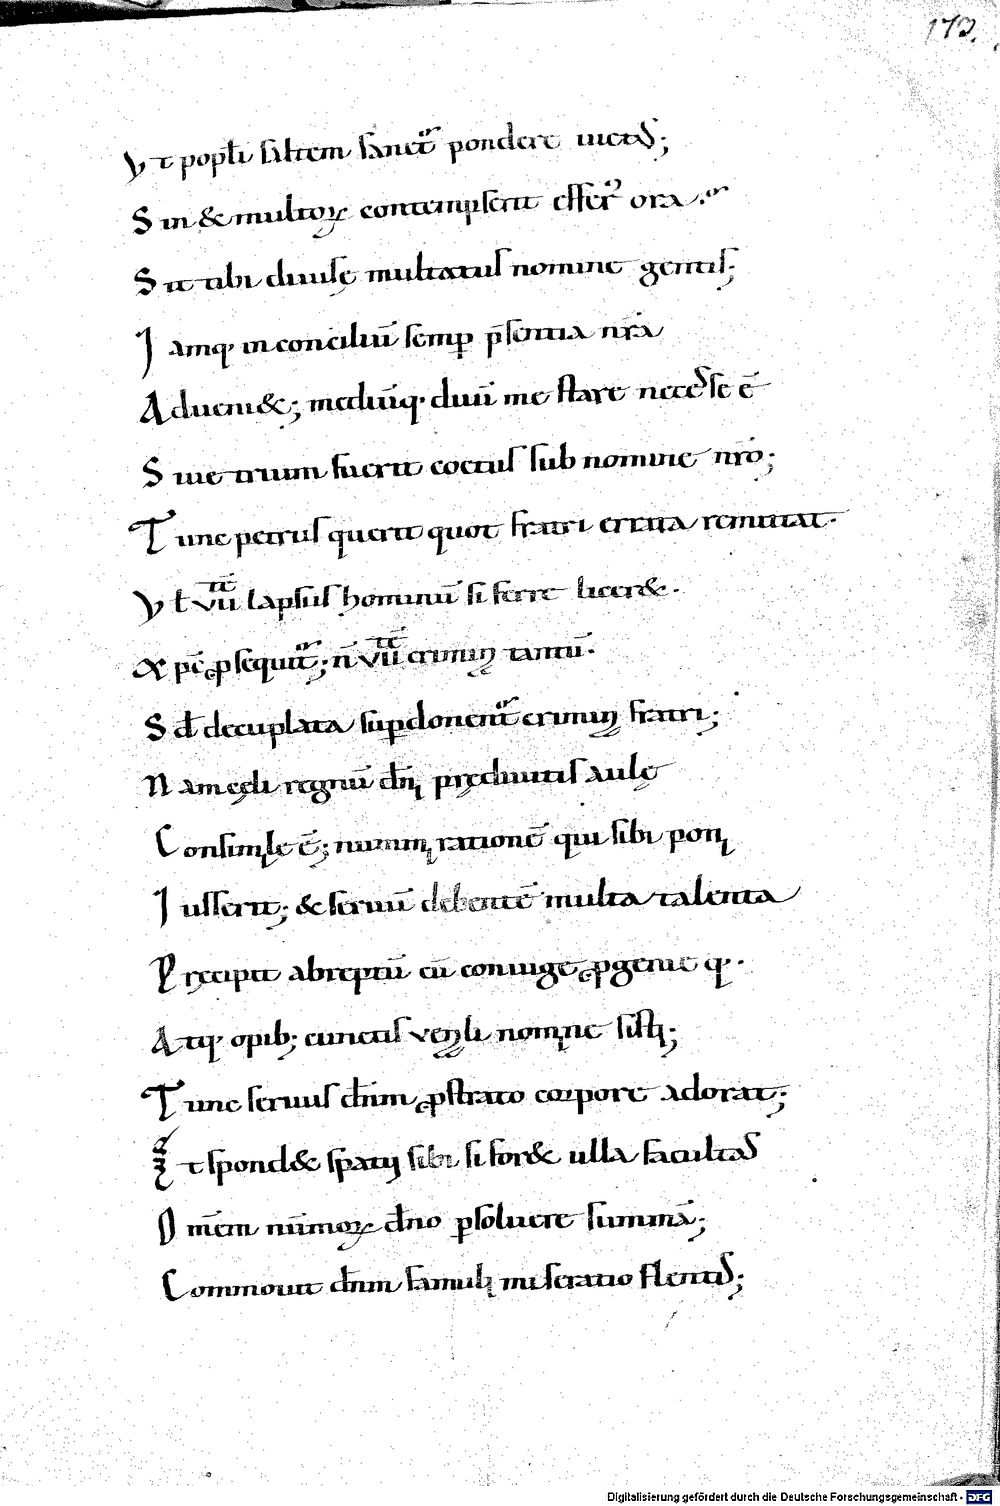 173.
Vt popłi saltem sanctur pondere uictus;
Sin & multoꝝ contempserit effer& ora.
Sit tibi diuisę multatus nomine gentis;
Iamq. in conciliū semp p̄sentia nr̄a
Adueni&; mediūq. duū me stare necesse ē
Siue trium fuerit coetus sub nomine nr̄o;
Tunc petrus querit quot fratri errata remittat.
Vł vii lapsus hominū si ferre licer&.
xp̄c ꝓsequit̄; n̄ vii criminꝫ tantū.
Sed decuplata supdonent̄ criminꝫ fratri;
Nam cęli regnū dn̄i prędiuitis aulę
Consimile ē; nummi rationē qui sibi poni
Iusserit; & seruū debentē multa talenta
Pręcipit abreptū cū coniuge ꝓgenie q.
Atq. opib; cunctis venali nomine sisti;
Tunc seruus dn̄m ꝓstrato corpore adorat;
Et spond& spatii sibi si for& ulla facultas
Om̄em nūmoꝝ dn̄o psoluere summā;
Commouit dn̄m famuli miseratio flentis;
Digitalisierung gefördert durch die Deutsche Forschungsgemeinschaft - DFG